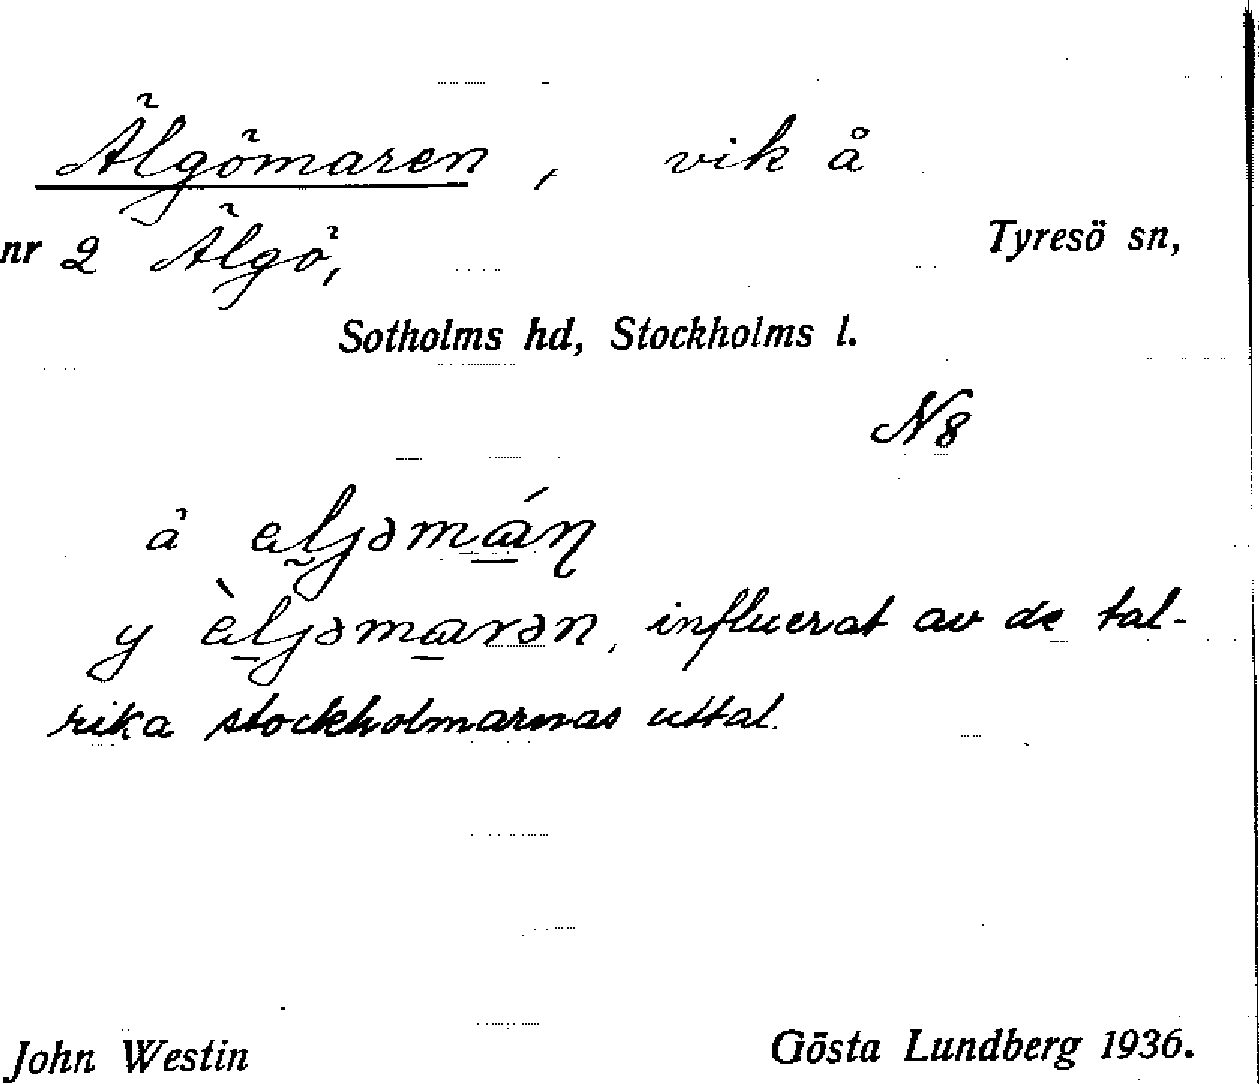 Älgömaren, vik å
nr 2 Älgö, Tyresö sn,
Sotholms hd, Stockholms l.
N8
å aljəmáṇ
y àljəmarən, influerat av de tal-
rika stockholmarnas uttal.
John Westin Gösta Lundberg 1936.